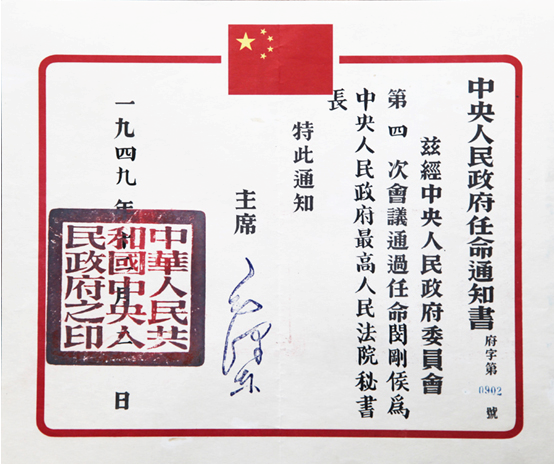 中央人民政府任命通知書
府字第 0902 號
兹經中央人民政府委員會
第四次會議通過任命閔剛侯爲
中央人民政府最高人民法院秘書
長
特此通知
主席 毛澤東
一九四九年十月 日
中華人民共
和國中央人
民政府之印